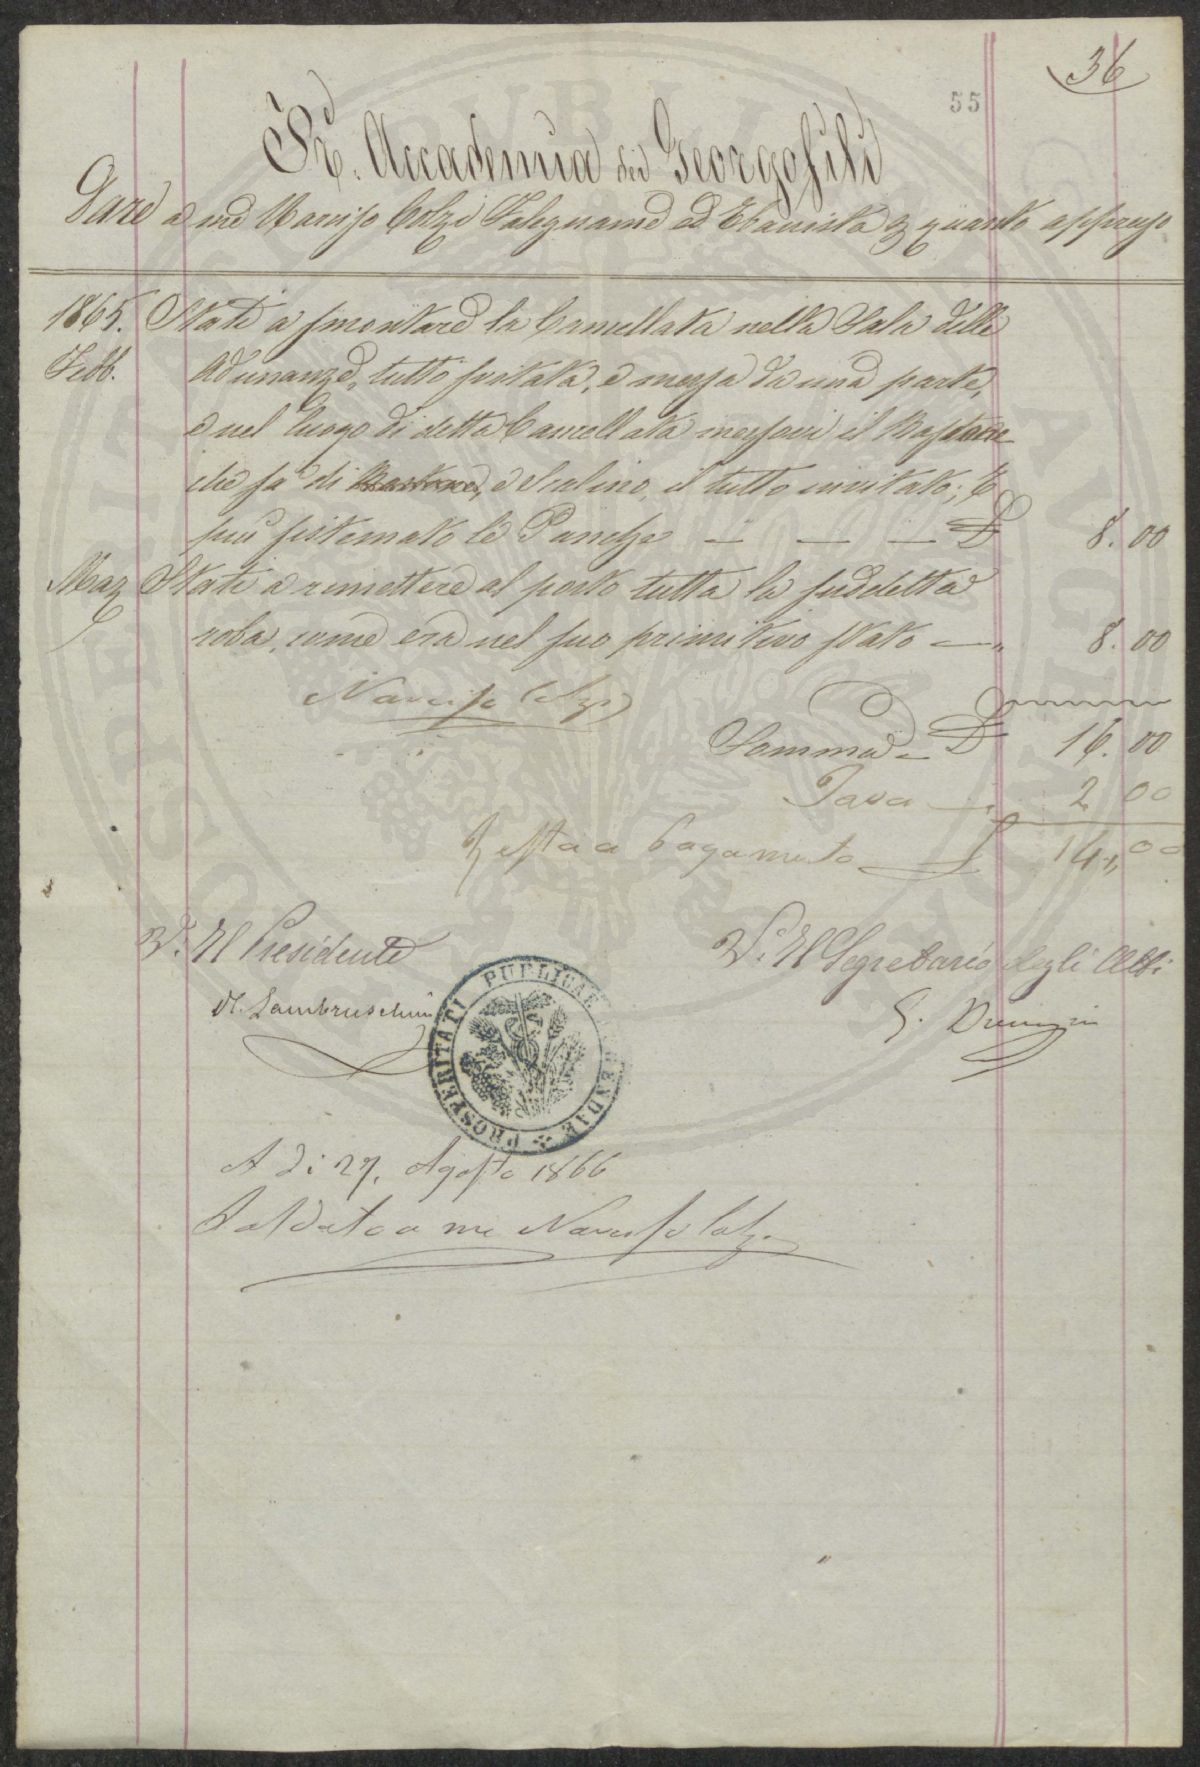 36
55
R. Accademia dei Georgofili
Dare a me Narciso Colzi Falegname ed Ebanista p quanto appresso
1865. Stati a smontare la Cancellata nella Sala delle
Febb. Adunanze, tutto svitata, e messa da una parte,
e nel luogo di detta Cancellata messovi il
che fa di e Scalino, il tutto invitato; E
più sistemato le Panche £ 8. 00
Marz Stati a rimettere al posto tutta la suddetta
roba, come era nel suo primitivo stato — „ 8. 00
Narciso Colzi
Somma £ 16. 00
Tara 2 00
Resta a Pagamento £ 14 „ 00
V. Il Presidente
V. Il Segretario degli Atti
R. Lambruschini
PROSPERITATI PUBLICAE AUGENDAE
A di 27, Agosto 1866
Saldato a me Narciso Colzi